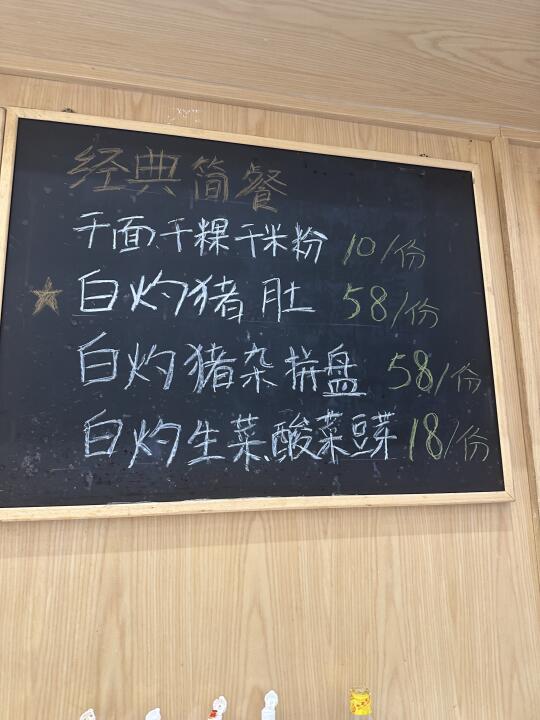 经典简餐
干面干粿干米粉 10/份
白灼猪肚 58/份
白灼猪杂拼盘 58/份
白灼生菜.酸菜豆芽 18/份